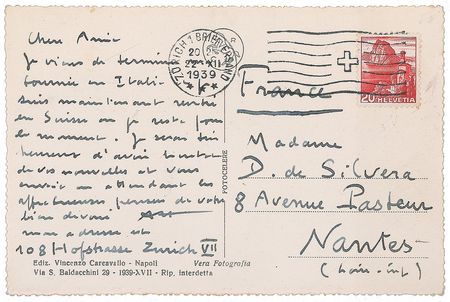 Chère Amie
Je viens de terminer
tournée en Italie
suis maintenant rentré
en Suisse où je reste pour
le moment. Je serais
d'avoir
de vos nouvelles et vous
envoie en attendant les
affectueuses pensées de votre
bien dévoué
mon adresse est
108 Hofstrasse Zurich VII
Ediz. Vincenzo Carcavallo - Napoli
Via S. Baldacchini 29 - 1939-XVII - Rip. interdetta
Vera Fotografia
FOTOCELERE
ZÜRICH 1 BRIEFVERSAND
20
22. XII
1939
20 HELVETIA
France
Madame
D. de Silvera
8 Avenue Pasteur
Nantes
(Loire-Inf)